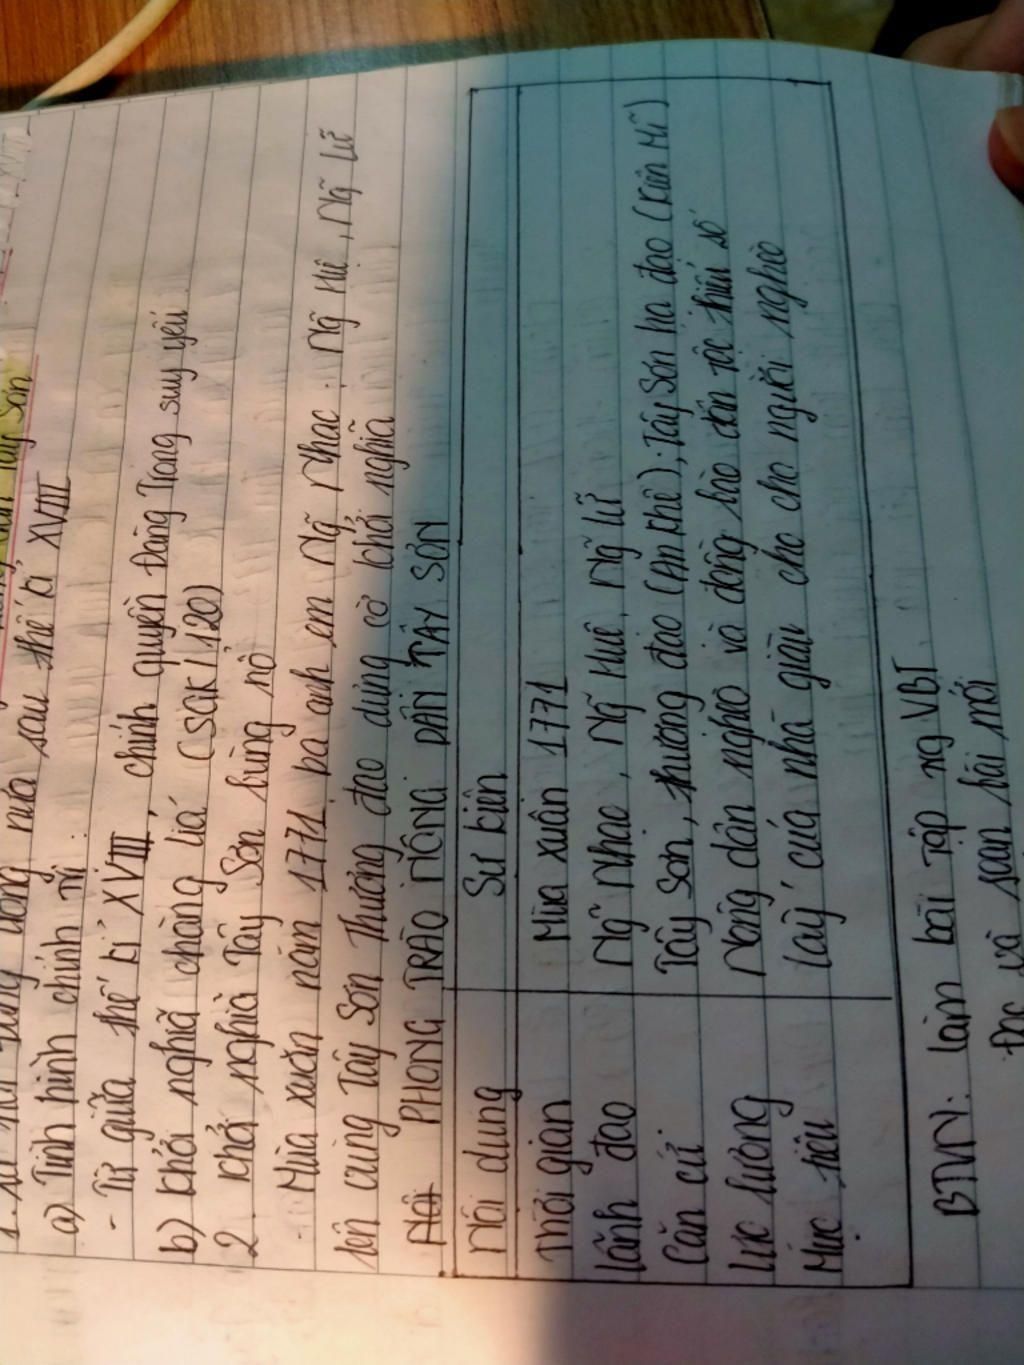 a) Tình hình chính trị:
- Từ giữa thế kỉ XVIII, chính quyền Đàng Trong suy yếu
b) Khởi nghĩa chàng Lía (SGK/120)
2. Khởi nghĩa Tây Sơn bùng nổ
- Mùa xuân năm 1771, ba anh em Ng~ Nhạc, Ng~ Huệ, Ng~ Lữ
lên cùng Tây Sơn Thượng đạo dựng cờ khởi nghĩa
PHONG TRÀO NÔNG DÂN TÂY SƠN
Nội dung | Sự kiện
Thời gian | Mùa xuân 1771
Lãnh đạo | Ng~ Nhạc, Ng~ Huệ, Ng~ Lữ
Căn cứ | Tây Sơn, thượng đạo (An Khê), Tây Sơn hạ đạo (Kiên Mĩ)
Lực lượng | Nông dân nghèo và đồng bào dân tộc thiểu số
Mục tiêu | Lấy của nhà giàu cho cho người nghèo
BTVN: Làm bài tập ng VBT
Đọc và soạn bài mới